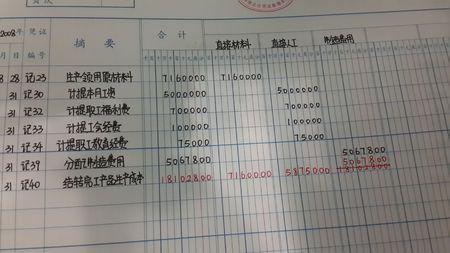 2008年 凭证 摘要 合计
直接材料 直接人工 制造费用
月 日 编号
8 28 记23 生产领用原材料 7160000 7160000
31 记30 计提本月工资 5000000 5000000
31 记32 计提职工福利费 700000 700000
31 记33 计提工会经费 100000 100000
31 记34 计提职工教育经费 75000 75000
31 记39 分配制造费用 5067800 5067800
31 记40 结转完工产品生产成本 18102800 7160000 5875000 5067800
18102800